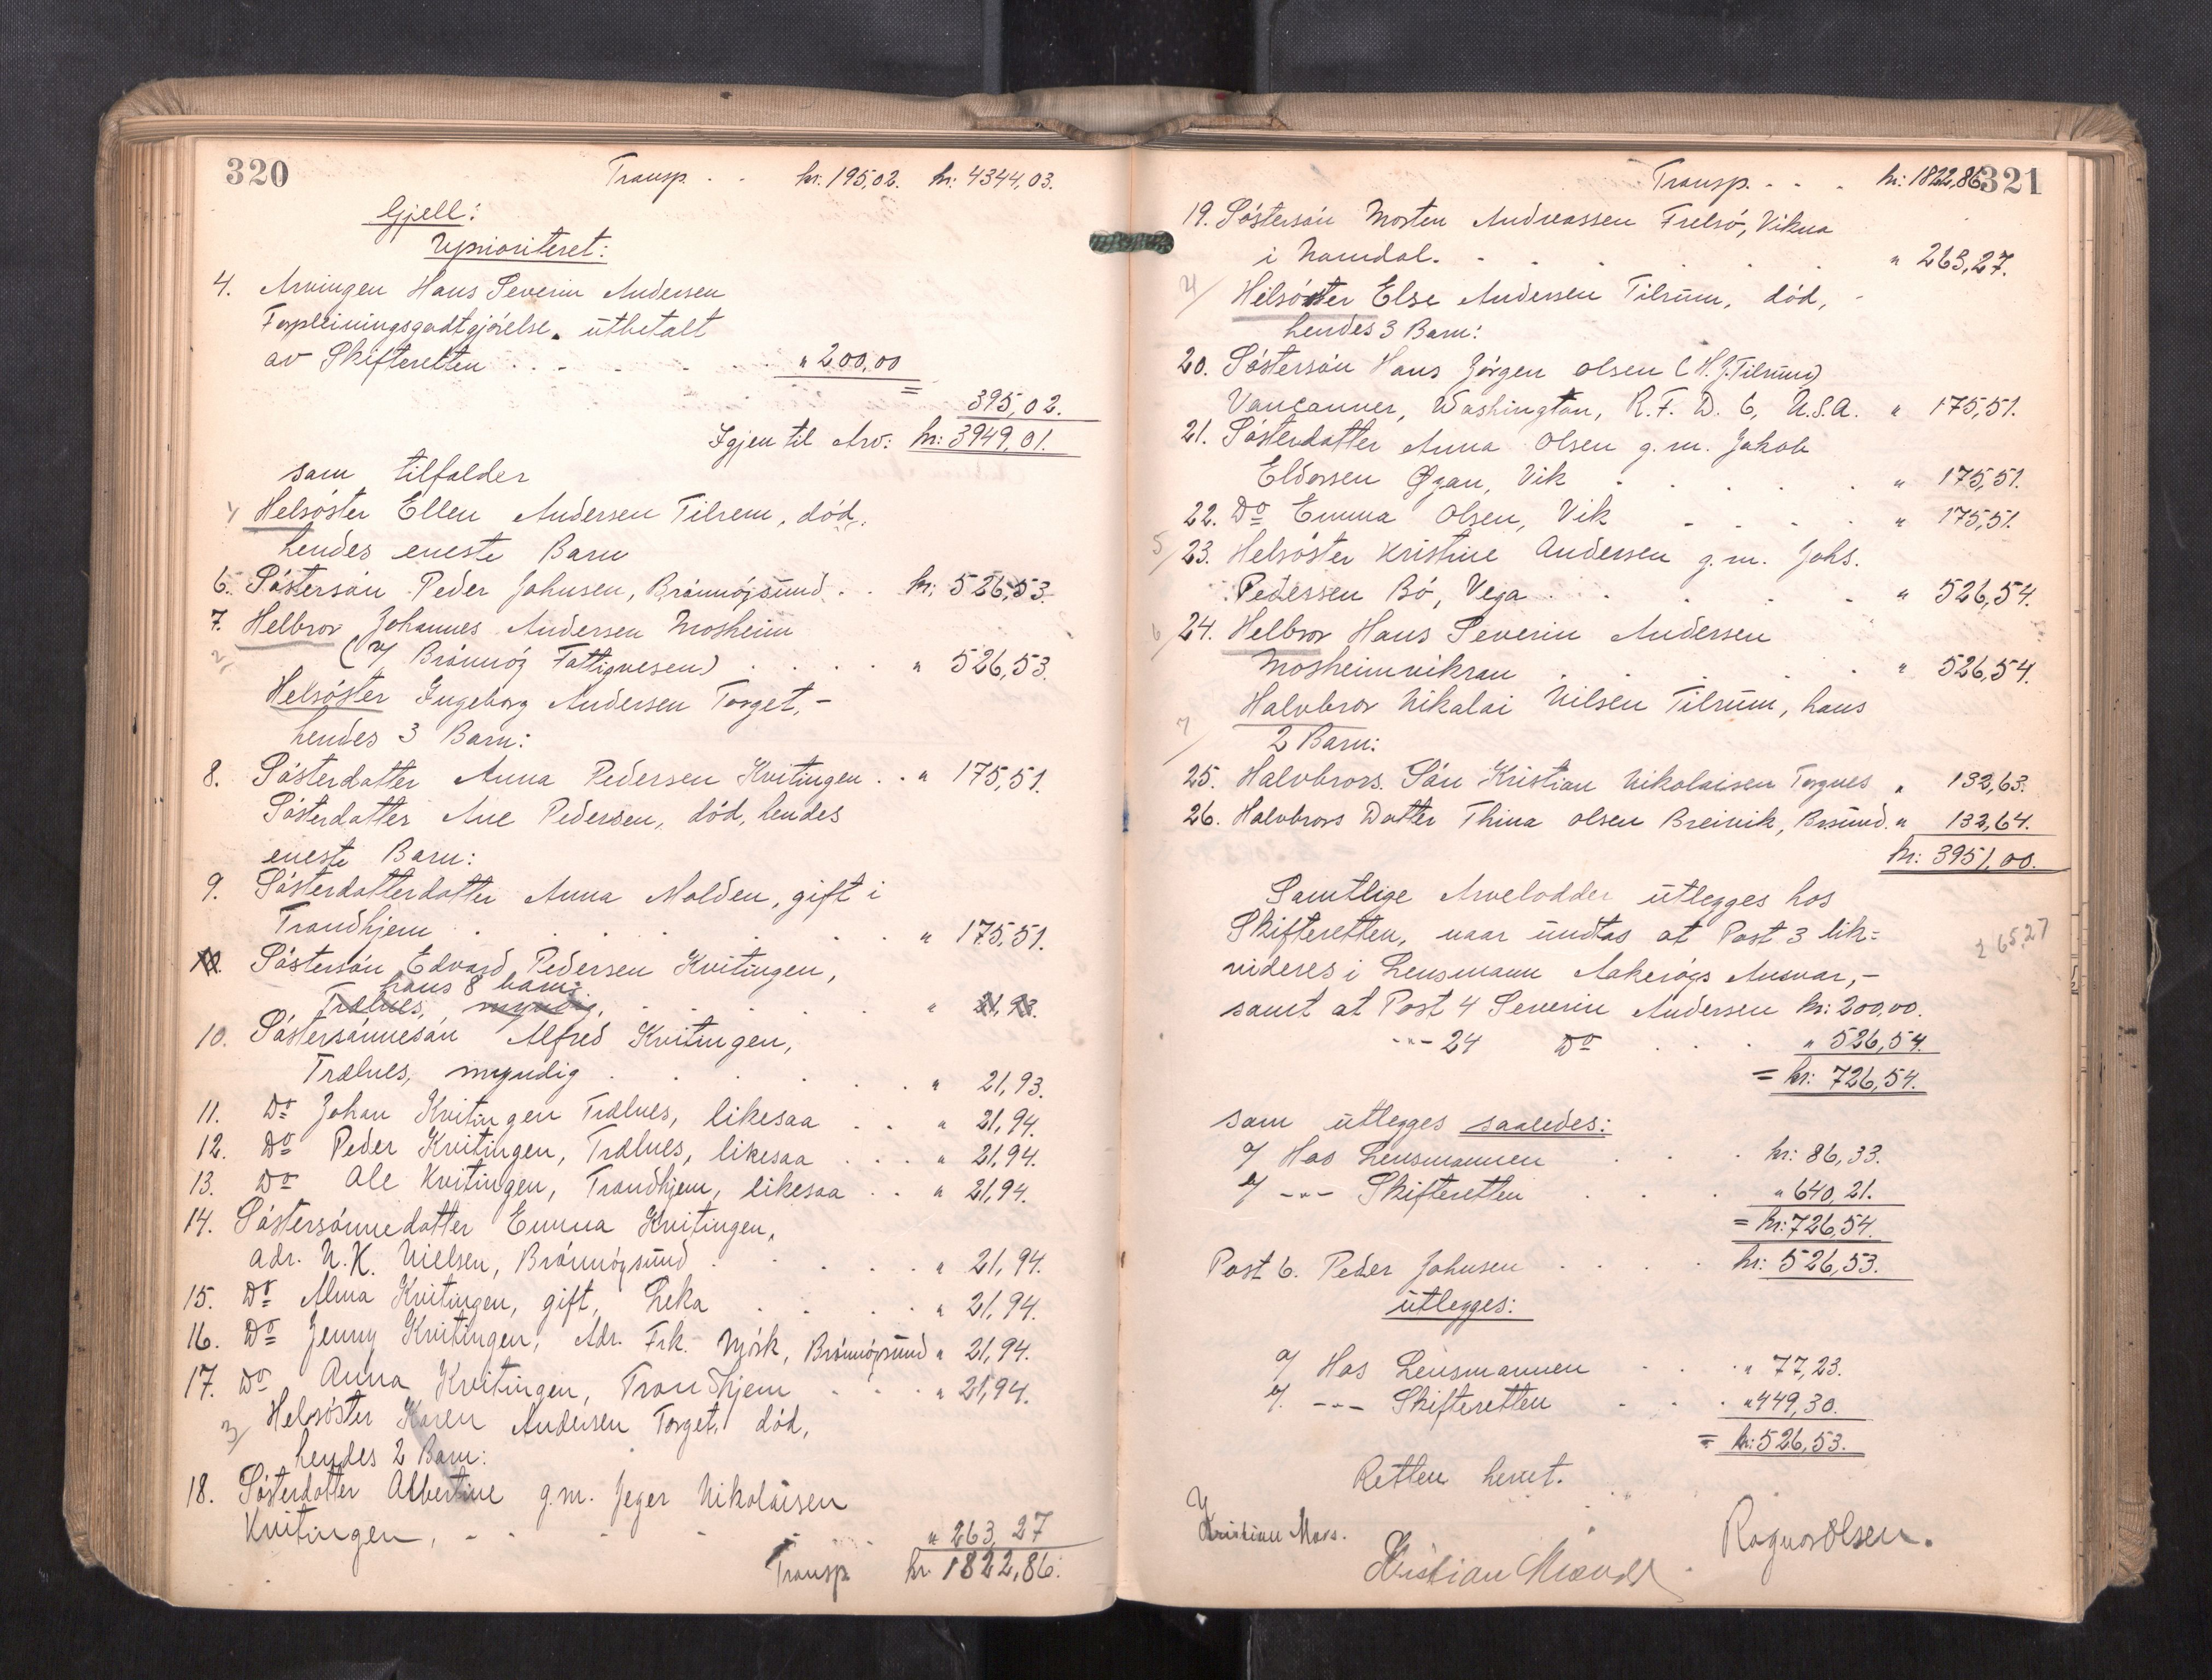 320
Transp. . . kr. 195,02. kr: 4344,03.
Gjell:
Uprioritert:
4. Arvingen Hans Severin Andersen
Forpleiningsgodtgjörelse, utbetalt
av Skifteretten . . . " 200,00
= 395,02.
Igjen til Arv: kr: 3949,01.
som tilfalder
1/ Helsöster Ellen Andersen Tilrem, död,
hendes eneste Barn
6. Söstersön Peder Johnsen, Brönnöysund . . kr: 526,53.
7. Helbror Johannes Andersen Mosheim
2/ (v/ Brönnöy Fattigvesen) . . . . " 526,53.
Helsöster Ingeborg Andersen Torget, -
hendes 3 Barn:
8. Sösterdatter Anna Pedersen Kvitingen . . " 175,51.
Sösterdatter Ane Pedersen, död, hendes
eneste Barn:
9. Sösterdatterdatter Anna Molden, gift i
Trondhjem . . . . . . " 175,51.
10. Söstersön Edvard Pedersen Kvitingen,
hans 8 barn:
Trælnes, myndig, . . . . " 21,93.
10. Söstersönnesön Alfred Kvitingen,
Trælnes, myndig . . . . . " 21,93.
11. Do Johan Kvitingen Trælnes, likesaa . . " 21,94.
12. Do Peder Kvitingen, Trælnes, likesaa . . . " 21,94.
13. Do Ole Kvitingen, Trondhjem, likesaa . . " 21,94.
14. Söstersönnedatter Emma Kvitingen,
adr. N.K. Nielsen, Brönnöysund . . . . " 21,94.
15. Do Alma Kvitingen, gift, Leka . . . . " 21,94.
16. Do Jenny Kvitingen, Adr. Frk. Mörk, Brönnöysund " 21,94.
17. Do Anna Kvitingen, Trondhjem . . . " 21,94.
3/ Helsöster Karen Andersen Torget, död,
hendes 2 Barn:
18. Sösterdatter Albertine g.m. Jeger Nikolaisen
Kvitingen, - - - - . " 263,27
Transp kr 1822,86.
321
Transp. - - . kr: 1822,86
19. Söstersön Morten Andreassen Frelsö, Vikna
i Namdal. . . . . . " 263,27.
4/ Helsöster Else Andersen Tilrum, död, -
hendes 3 Barn:
20. Söstersön Hans Jörgen Olsen (H.J. Tilrum)
Vancauver, Washington, R.F.D. 6, U.S.A. " 175,51.
21. Sösterdatter Anna Olsen g.m. Jakob
Eldorsen Øgan, Vik . . . . . " 175,51.
22. Do Emma Olsen, Vik - . . . " 175,51.
5/ 23. Helsöster Kristine Andersen g.m. Johs.
Pedersen Bö, Vega . . . . . " 526,54.
6/ 24. Helbror Hans Severin Andersen
Mosheimvikran . . . . " 526,54.
Halvbror Nikolai Nilsen Tilrum, hans
7/ 2 Barn:
25. Halvbrors Sön Kristian Nikolaisen Torgnes " 132,63.
26. Halvbrors Datter Thina Olsen Breivik, Brsund. " 132,64.
kr: 3951,00.
Samtlige Arvelodder utlegges hos
Skifteretten, naar undtas at Post 3 lik=
videres i Lensmann Aakeröys Ansvar, -
265,27
samt at Post 4 Severin Andersen kr: 200,00.
-"- 24 Do . . . " 526,54.
= kr: 726,54.
som utlegges saaledes:
a/ Hos Lensmannen . . . kr: 86,33.
b/ -"- Skifteretten . . . " 640,21.
= kr: 726,54.
Post 6. Peder Johnsen . . . . kr: 526,53.
utlegges:
a/ Hos Lensmannen . . . " 77,23.
b/. -"- Skifteretten . . . " 449,30.
= kr: 526,53.
Retten hevet.
Kristian Mars.
Ragnar Olsen.